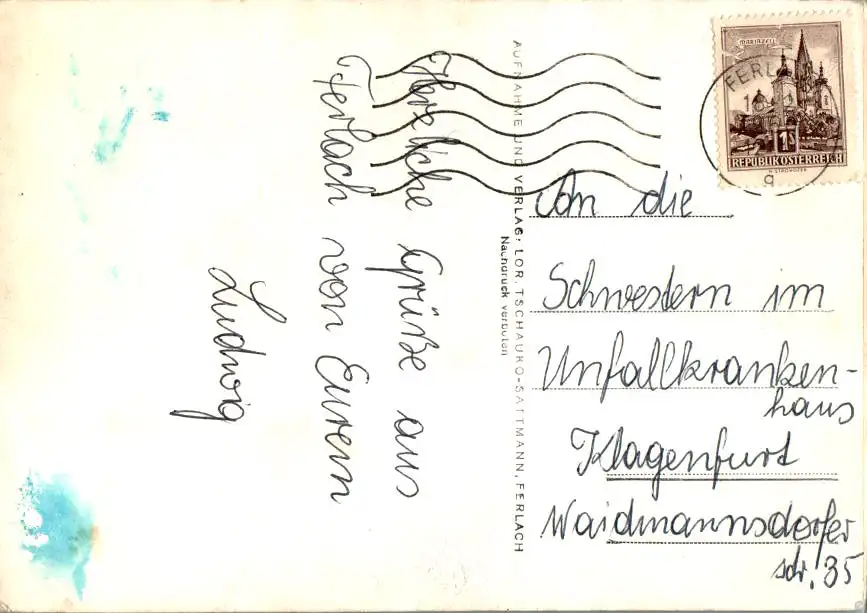 Herzliche Grüße aus
Ferlach von Eurem
Ludwig
AUFNAHME UND VERLAG: LOR. TSCHAUKO-SATTMANN, FERLACH
Nachdruck verboten
MARIAZELL
1S
REPUBLIK ÖSTERREICH
FERLACH
An die
Schwestern im
Unfallkranken-
haus
Klagenfurt
Waidmannsdorfer
str. 35